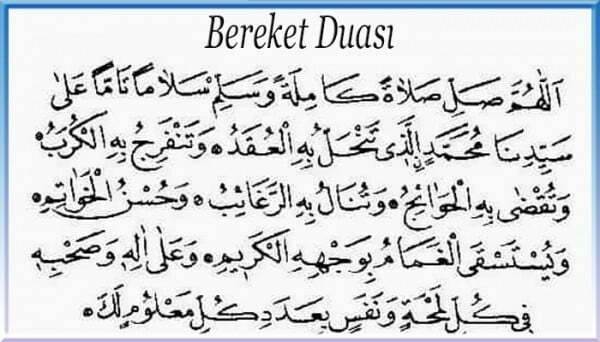 Bereket Duası
اَللّٰهُمَّ صَلِّ صَلَاةً كَامِلَةً وَسَلِّمْ سَلَامًا تَامًّا عَلٰى
سَيِّدِنَا مُحَمَّدٍ الَّذِى تَنْحَلُّ بِهِ الْعُقَدُ وَتَنْفَرِجُ بِهِ الْكُرَبُ
وَتُقْضٰى بِهِ الْحَوَائِجُ وَتُنَالُ بِهِ الرَّغَائِبُ وَحُسْنُ الْخَوَاتِمِ
وَيُسْتَسْقَى الْغَمَامُ بِوَجْهِهِ الْكَرِيمِ وَعَلٰى اٰلِهِ وَصَحْبِهِ
فِى كُلِّ لَمْحَةٍ وَنَفَسٍ بِعَدَدِ كُلِّ مَعْلُومٍ لَكَ